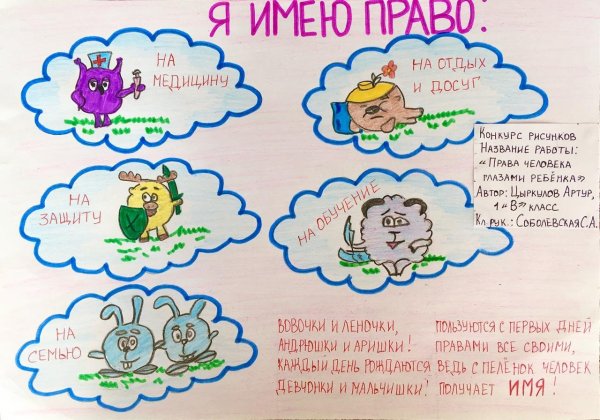 Я ИМЕЮ ПРАВО!
НА
МЕДИЦИНУ
НА ОТДЫХ
И ДОСУГ
НА
ЗАЩИТУ
НА ОБУЧЕНИЕ
НА
СЕМЬЮ
Конкурс рисунков
Название работы:
"Права человека
глазами ребёнка"
Автор: Цыркулов Артур,
1 "В" класс
Кл.рук.: Соболевская С.А.
ВОВОЧКИ И ЛЕНОЧКИ,
АНДРЮШКИ И АРИШКИ!
КАЖДЫЙ ДЕНЬ РОЖДАЮТСЯ
ДЕВЧОНКИ И МАЛЬЧИШКИ!
ПОЛЬЗУЮТСЯ С ПЕРВЫХ ДНЕЙ
ПРАВАМИ ВСЕ СВОИМИ,
ВЕДЬ С ПЕЛЁНОК ЧЕЛОВЕК
ПОЛУЧАЕТ ИМЯ!